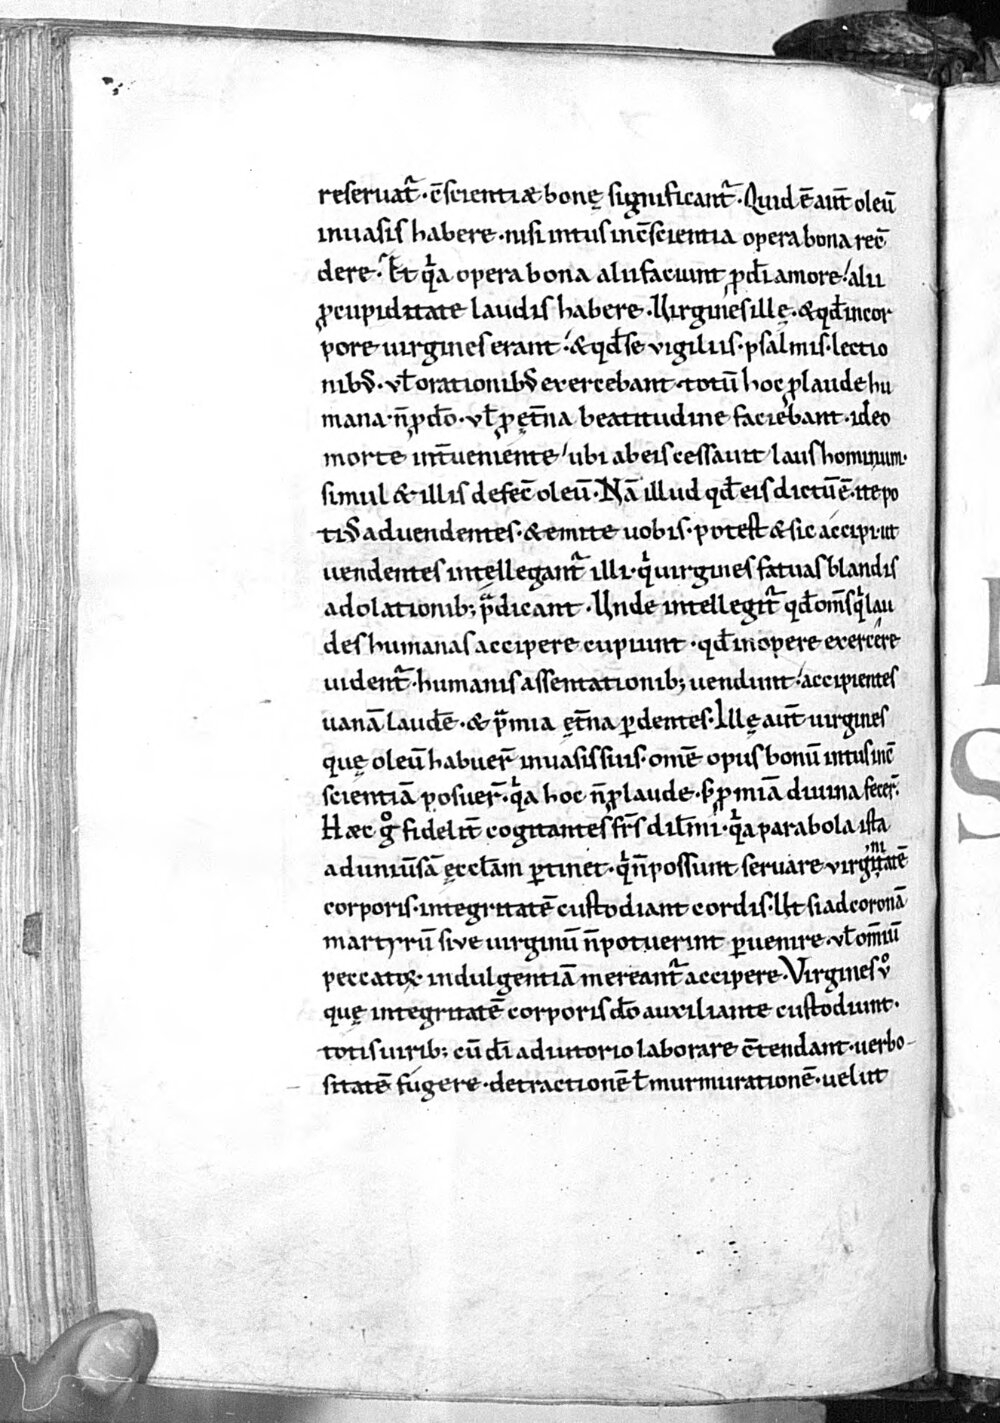 reseruat᷑· c̄scientiæ bonę significant᷑· Quid ē aut̄ oleū
inuasis habere· nisi intus in c̄scientia opera bona rec̄
dere· Et qͥa opera bona alii faciunt ꝓ dī amore· alii
ꝓ cupiditate laudis habere· Uirgines illę· & qd̄ incor
pore uirgines erant· & qd̄ se vigiliis· psalmis· lectio
nibꝰ· vł orationibꝰ exercebant· totū hoc ꝓ laude hu
mana· n̄ ꝓ dō· vł ꝓ ęt̄na beatitudine faciebant· ideo
morte int̄ueniente ubi ab eis cessauit laus hominum·
simul & illis defec̄ oleū· Nā illud qd̄ eis dictū ē· ite po
tiꝰ ad uendentes· & emite uobis· potest & sic accipi· ut
uendentes intellegant᷑ illi· qͥ uirgines fatuas blandis
adolationib; p̄dicant· Unde intellegit᷑ qd̄ om̄s qͥ lau
des humanas accipere cupiunt· qd̄ in opere exercere
uident᷑· humanis assentationib; uendunt· accipientes
uanā laudē· & p̄mia ęt̄na ꝑdentes· Illę aut̄ uirgines
quę oleū habuer̄ inuasis suis· omē opus bonū intus in c̄
scientiā posuer̄· qͥa hoc n̄ ꝓ laude· s; ꝓ miā diuina fecer̄·
Hæc gͦ fidelit̄ cogitantes fr̄s dilm̄i· qͥa parabola ista
ad uniūsā ęcclam̄ ꝑtinet· qͥ n̄ possunt seruare virginitatē
corporis· integritatē custodiant cordis· Ut si ad coronā
martyrū sive uirginū n̄ potuerint ꝑuenire· vł om̄iū
peccatoꝝ indulgentiā mereant᷑ accipere· Virgines vͦ
quę integritatē corporis dō auxiliante custodiunt·
totis uirib; cū dī adiutorio laborare c̄tendant· uerbo-
sitatē fugere· detractionē ł murmurationē· uelut